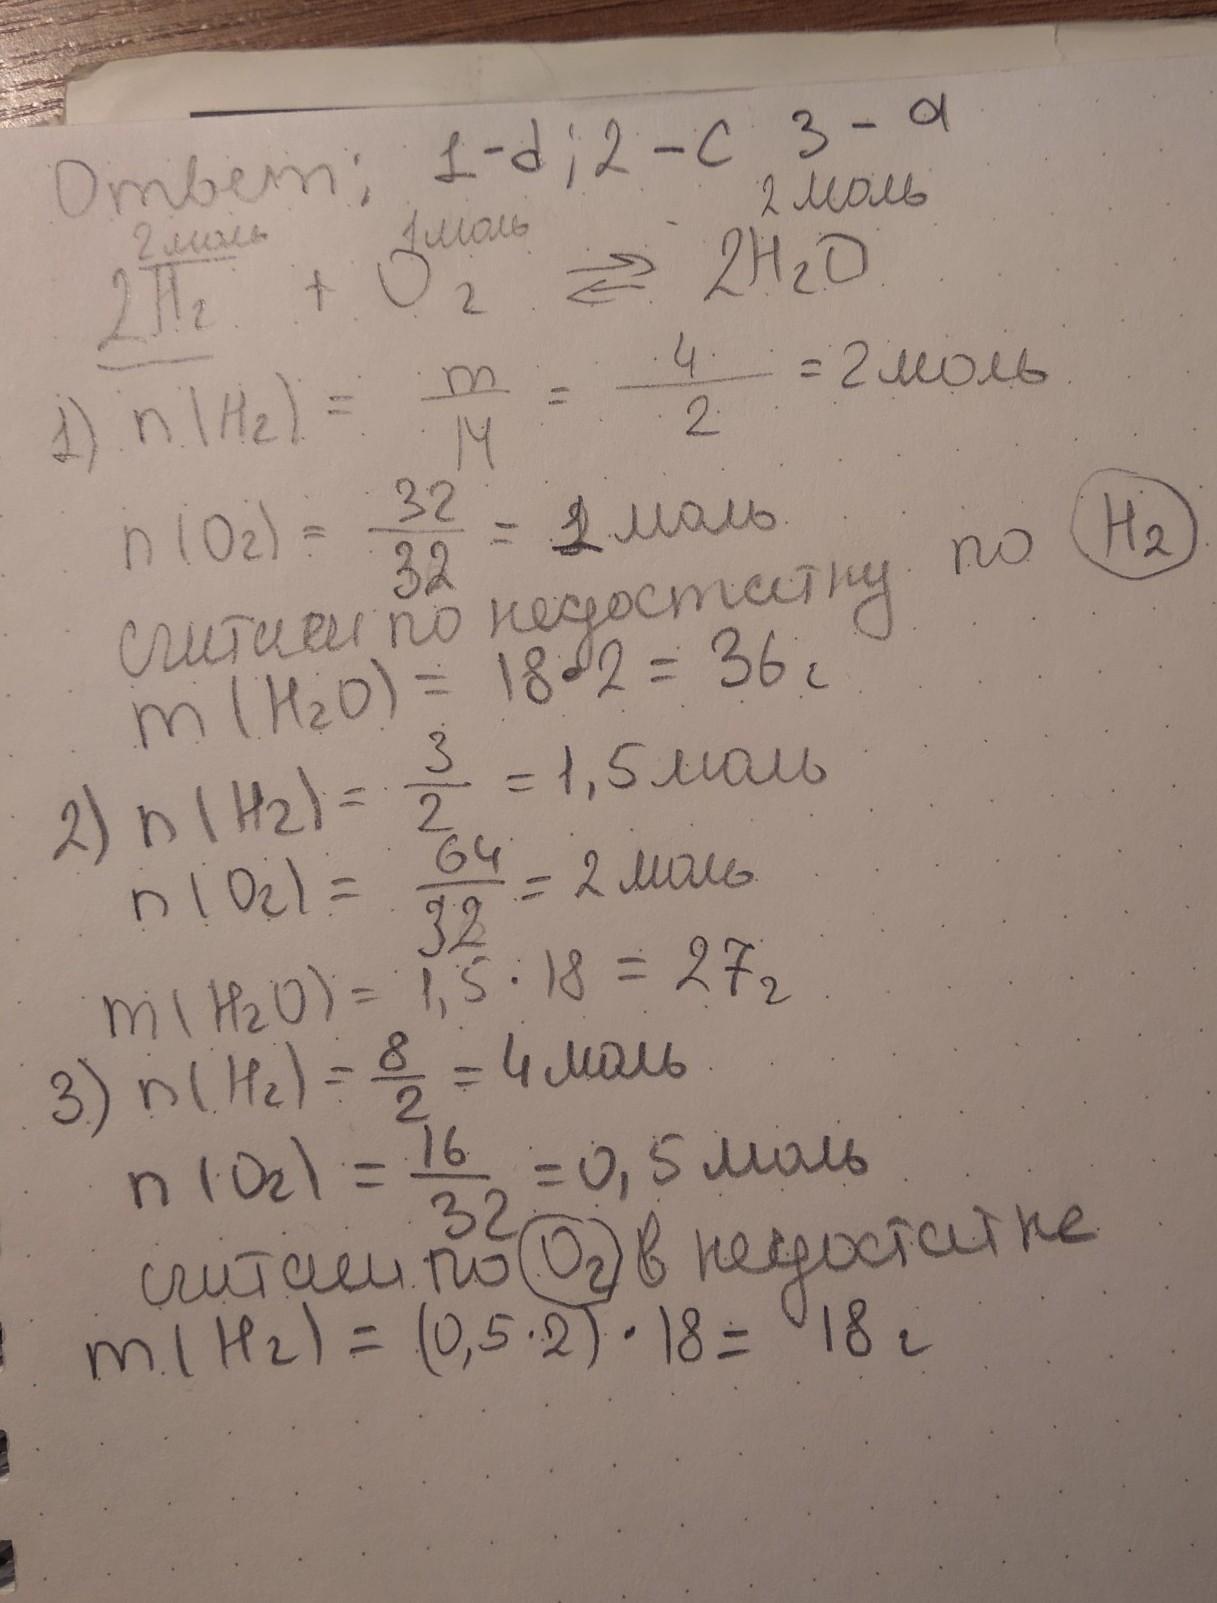 Ответ: 1-d; 2-c 3-a
2 моль 1 моль 2 моль
2H2 + O2 ⇌ 2H2O
1) n(H2) = m/M = 4/2 = 2 моль
n(O2) = 32/32 = 1 моль
считаем по недостатку по H2
m(H2O) = 18·2 = 36 г
2) n(H2) = 3/2 = 1,5 моль
n(O2) = 64/32 = 2 моль
m(H2O) = 1,5·18 = 27 г
3) n(H2) = 8/2 = 4 моль
n(O2) = 16/32 = 0,5 моль
считаем по O2 в недостатке
m(H2) = (0,5·2)·18 = 18 г